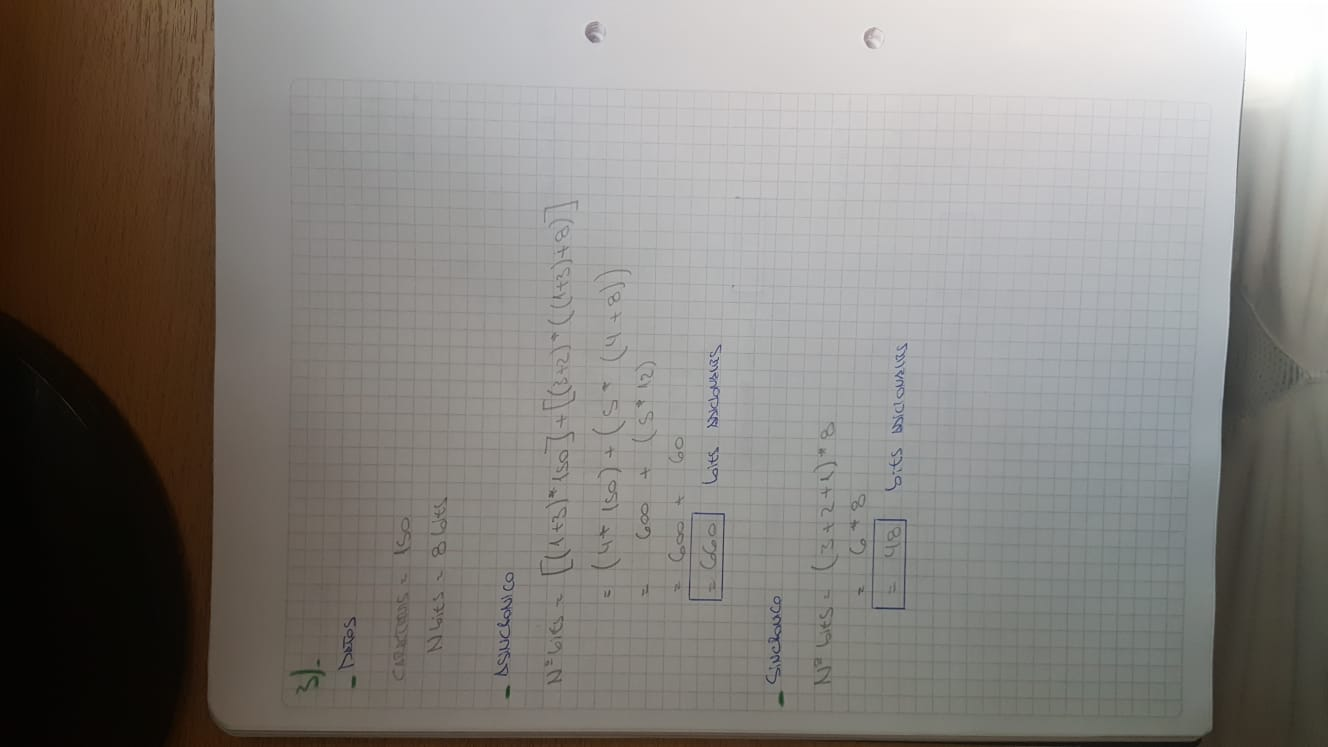 3).-
- DATOS
CARACTERES = 150
N bits = 8 bits
- ASINCRONICO
Nº bits = [(1+3)*150]+[(3+2)*((1+3)+8)]
= (4*150)+(5*(4+8))
= 600 + (5*12)
= 600 + 60
= 660 bits ADICIONALES
- SINCRONICO
Nº bits = (3+2+1)*8
= 6*8
= 48 bits ADICIONALES